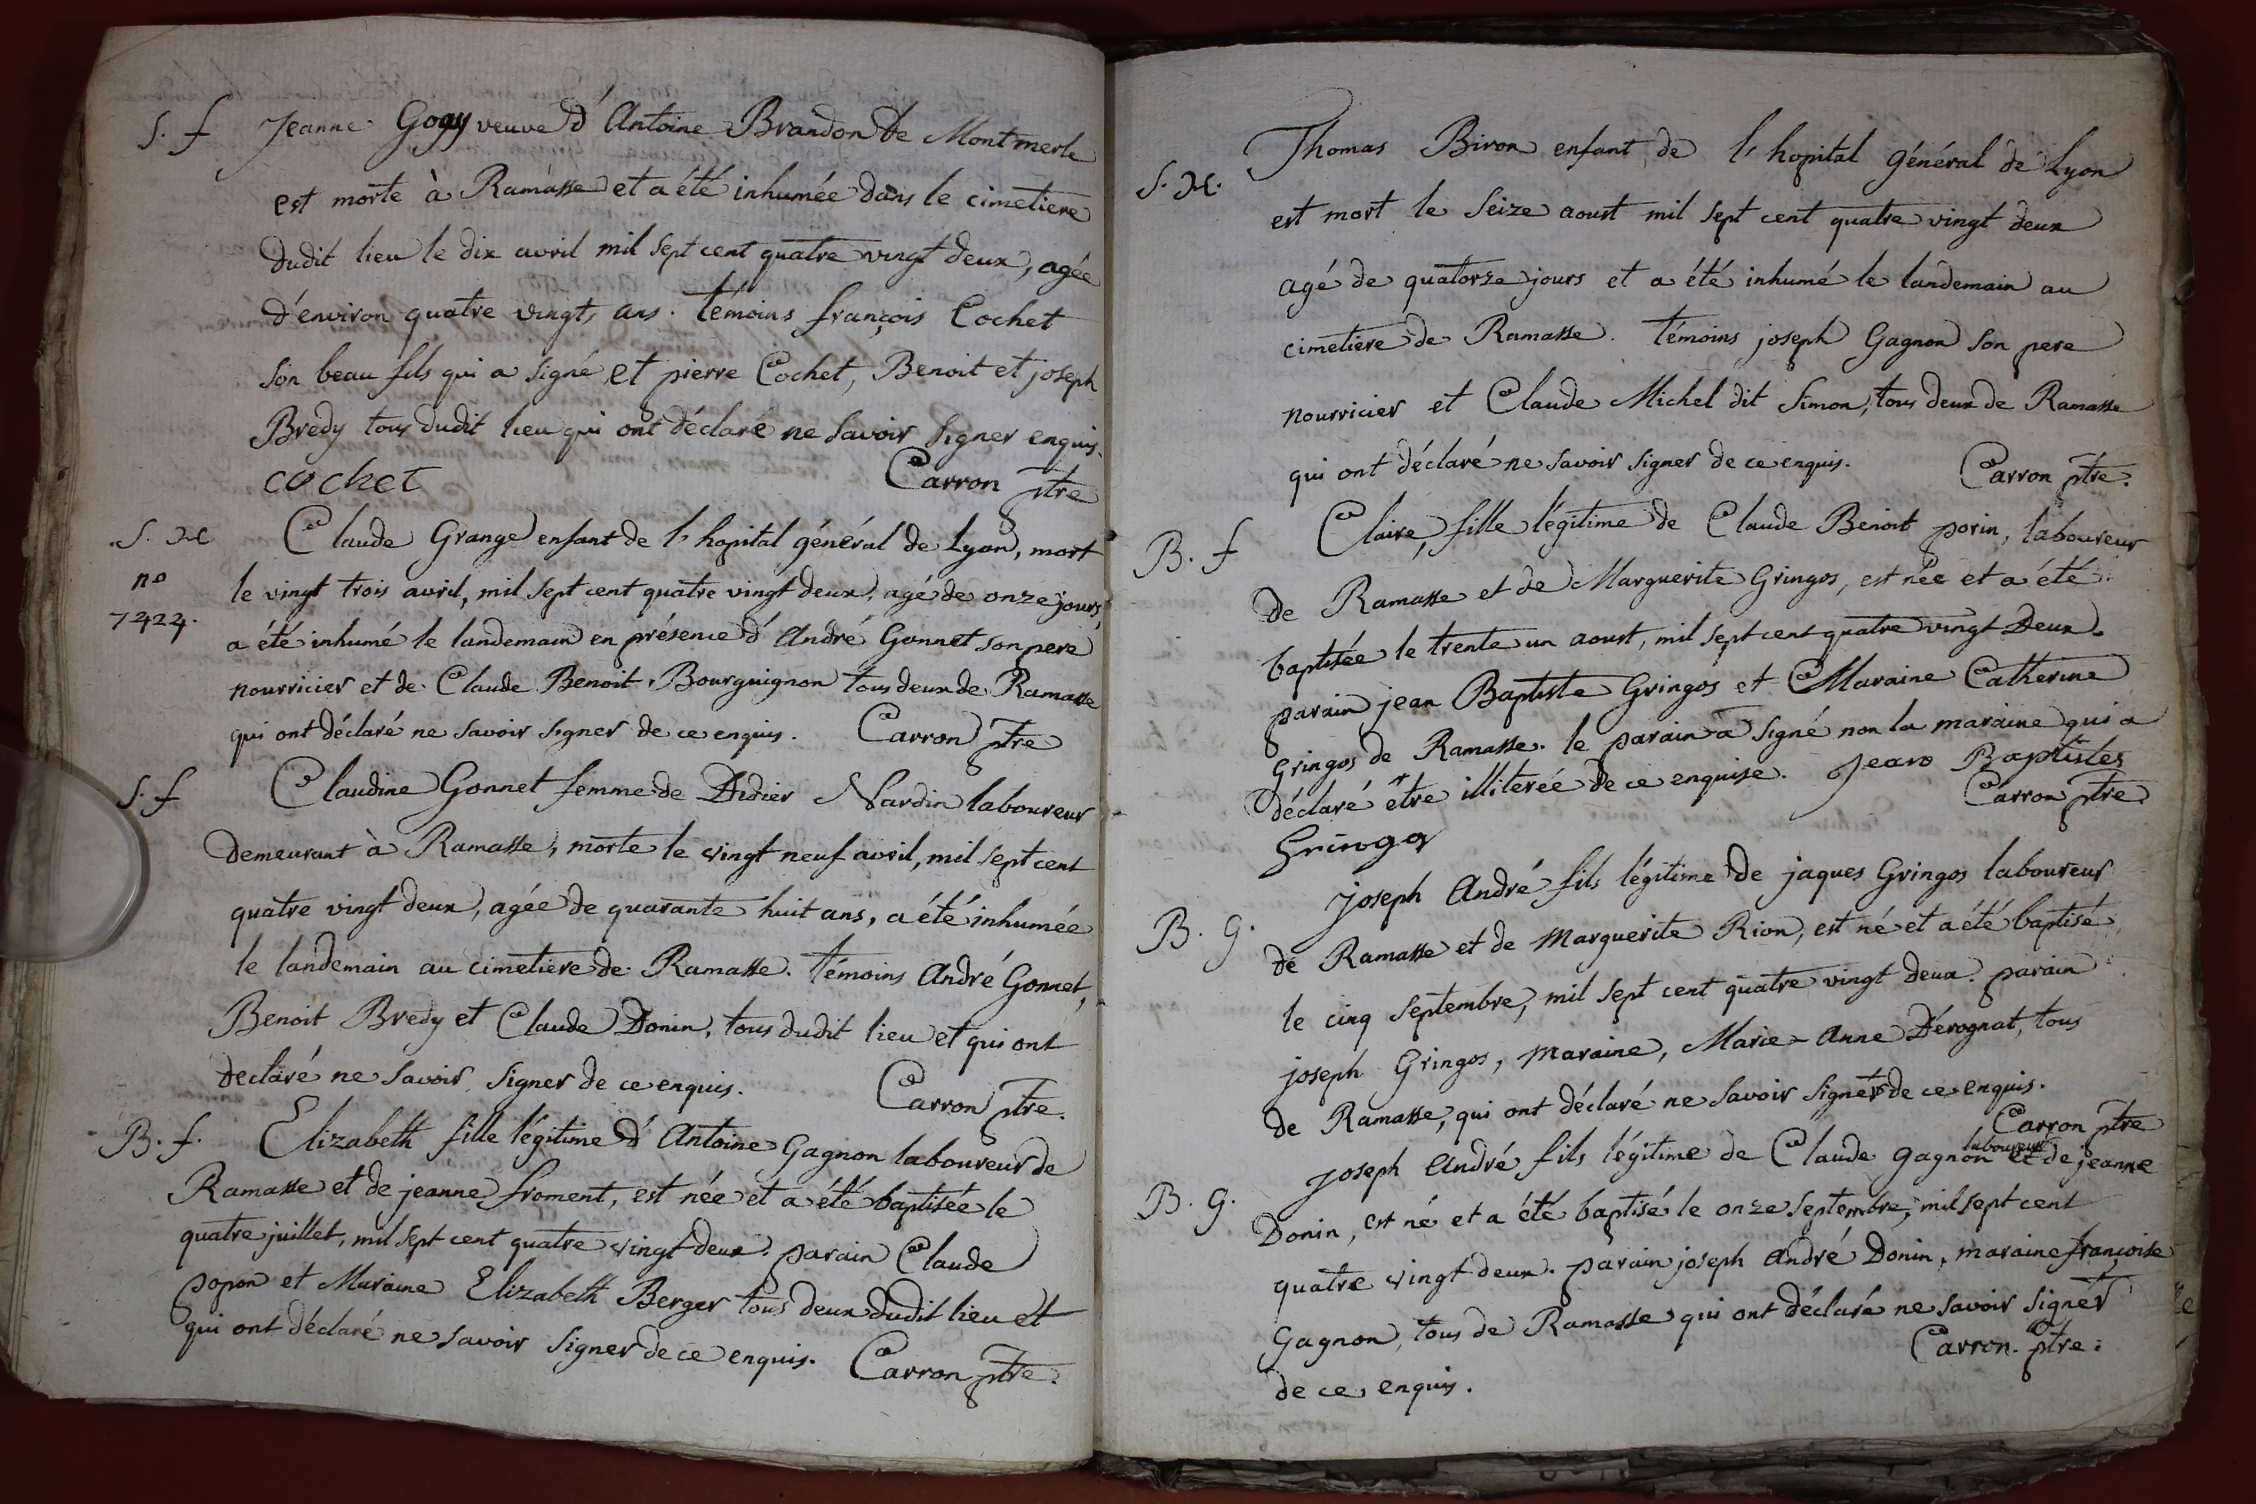 S. f Jeanne Gogy veuve d'Antoine Brandon de Montmerle
est morte à Ramasse et a été inhumée dans le cimetiere
dudit lieu le dix avril mil sept cent quatre vingt deux, agée
d'environ quatre vingts ans. témoins françois Cochet
son beau fils qui a signé et pierre Cochet, Benoit et joseph
Bredy tous dudit lieu qui ont déclaré ne savoir signer enquis.
cochet Carron ptre
S. M Claude Grange enfant de l'hopital général de Lyon, mort
n° le vingt trois avril, mil sept cent quatre vingt deux, agé de onze jours,
7424. a été inhumé le landemain en présence d'André Gonnet son pere
nourricier et de Claude Benoit Bourguignon tous deux de Ramasse
qui ont déclaré ne savoir signer de ce enquis. Carron ptre
S. f Claudine Gonnet femme de Didier Nardin laboureur
demeurant à Ramasse, morte le vingt neuf avril, mil sept cent
quatre vingt deux, agée de quarante huit ans, a été inhumée
le landemain au cimetiere de Ramasse. témoins André Gonnet,
Benoit Bredy et Claude Donin, tous dudit lieu et qui ont
declaré ne savoir signer de ce enquis. Carron ptre.
B. f. Elizabeth fille légitime d'Antoine Gagnon laboureur de
Ramasse et de jeanne froment, est née et a été baptisée le
quatre juillet, mil sept cent quatre vingt deux. parain Claude
popon et Maraine Elizabeth Berger tous deux dudit lieu et
qui ont déclaré ne savoir signer de ce enquis. Carron ptre.
S. M. Thomas Biron enfant de l'hopital général de Lyon
est mort le seize aoust mil sept cent quatre vingt deux
agé de quatorze jours et a été inhumé le landemain au
cimetiere de Ramasse. témoins joseph Gagnon son pere
nourricier et Claude Michel dit Simon, tous deux de Ramasse
qui ont déclaré ne savoir signer de ce enquis. Carron ptre.
B. f Claire, fille légitime de Claude Benoit porin, laboureur
de Ramasse et de Marguerite Gringos, est née et a été
baptisée le trente un aoust, mil sept cent quatre vingt Deux.
parain jean Baptiste Gringos et Maraine Catherine
Gringos de Ramasse. le parain a signé non la maraine qui a
déclaré être illiterée de ce enquise. Jean Baptistes
Gringos Carron ptre.
B. G. joseph André fils légitime de jaques Gringos laboureur
de Ramasse et de Marguerite Rion, est né et a été baptisé
le cinq septembre, mil sept cent quatre vingt deux. parain
joseph Gringos, maraine, Marie-Anne Dérognat, tous
de Ramasse, qui ont déclaré ne savoir signer de ce enquis.
Carron ptre
laboureur
B. G. joseph André fils légitime de Claude gagnon et de jeanne
Donin, est né et a été baptisé le onze septembre, mil sept cent
quatre vingt deux. parain joseph André Donin, maraine françoise
Gagnon, tous de Ramasse qui ont déclaré ne savoir signer
de ce enquis. Carron. ptre.